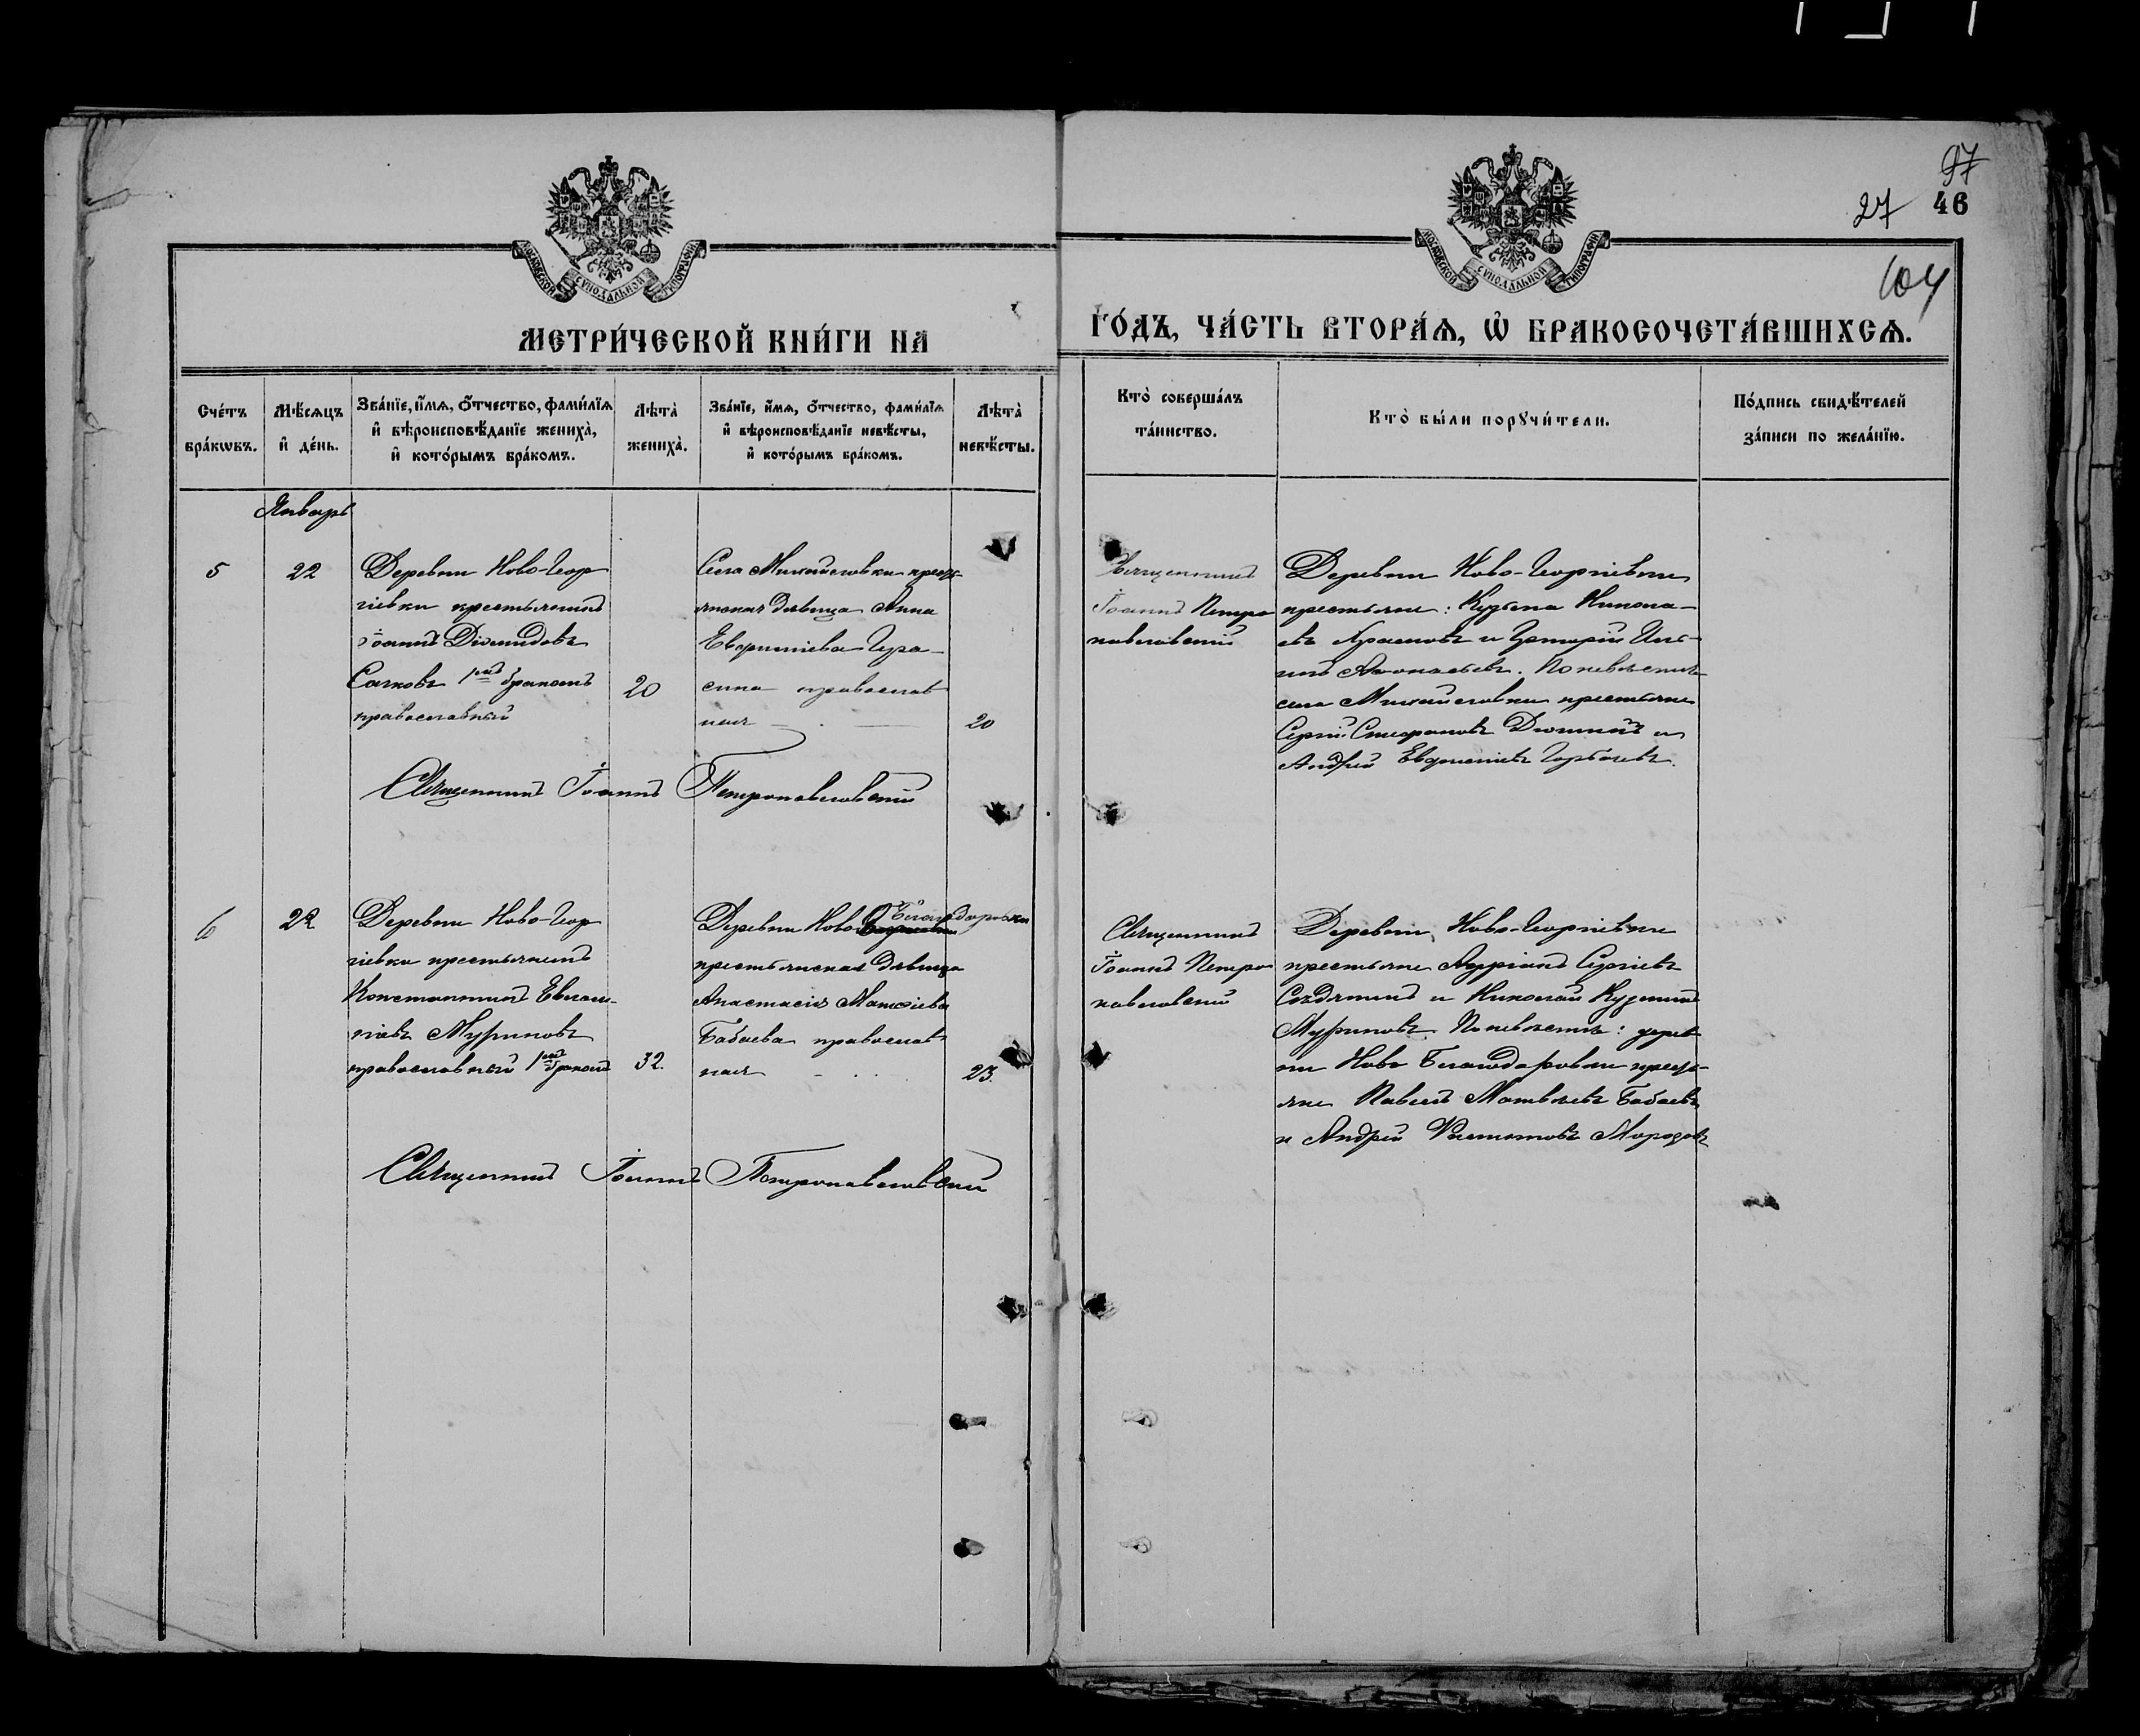 97
27 46
104
МОСКОВСКОЙ СѴНОДАЛЬНОЙ ТИПОГРАФІИ
МОСКОВСКОЙ СѴНОДАЛЬНОЙ ТИПОГРАФІИ
МЕТРИ́ЧЕСКОЙ КНИ́ГИ НА
ГО́ДЪ, ЧА́СТЬ ВТОРА́Ѧ, Ѡ БРАКОСОЧЕТА́ВШИХСѦ.
Сче́тъ
бра́кѡвъ.
Мѣ́сѧцъ
и҆ де́нь.
Зва́нїе, и҆́мѧ, ѻ҆́тчество, фами́лїѧ
и҆ вѣроисповѣ́данїе жениха̀,
и҆ кото́рымъ бра́комъ.
Лѣта̀
жениха̀.
Зва́нїе, и҆́мѧ, ѻ҆́тчество, фами́лїѧ
и҆ вѣроисповѣ́данїе невѣ́сты,
и҆ кото́рымъ бра́комъ.
Лѣта̀
невѣ́сты.
Кто̀ соверша́лъ
та́инство.
Кто̀ бы́ли порꙋчи́тели.
По́дпись свидѣ́телей
за́писи по жела́нїю.
Январь
5
22
Деревни Ново-Геор
гіевки крестьянинъ
Іоаннъ Діомидовъ
Сачковъ 1мъ бракомъ
православный
20
Села Михайловки крест-
янская дѣвица Анна
Евфиміева Гера-
сина православ
ная
20
Священникъ
Іоаннъ Петро
павловскій
Деревни Ново-Георгіевки
крестьяне: Кузьма Никола-
евъ и Григорій
Аѳонасьевъ. По невѣстѣ
села Михайловки крестьяне
Сергій Стефановъ и
Андрей Евфиміевъ Горбачевъ.
Священникъ Іоаннъ Петропавловскій
6
22
Деревни Ново-Геор
гіевки крестьянинъ
Константинъ Евгені-
іевъ Муриновъ
православный 1мъ бракомъ
32.
Деревни Ново Благодаровки
крестьянская дѣвица
Анастасія Матѳіева
Бабаева православ
ная
23.
Священникъ
Іоаннъ Петро
павловскій
Деревни Ново-Георгіевки
крестьяне Сергіевъ
и Николай Кузминъ
Муриновъ. По невѣстѣ: дерев
ни Ново Благодаровки крест-
яне Павелъ Матвѣевъ Бабаевъ
и Андрей Морозовъ
Священникъ Іоаннъ Петропавловскій